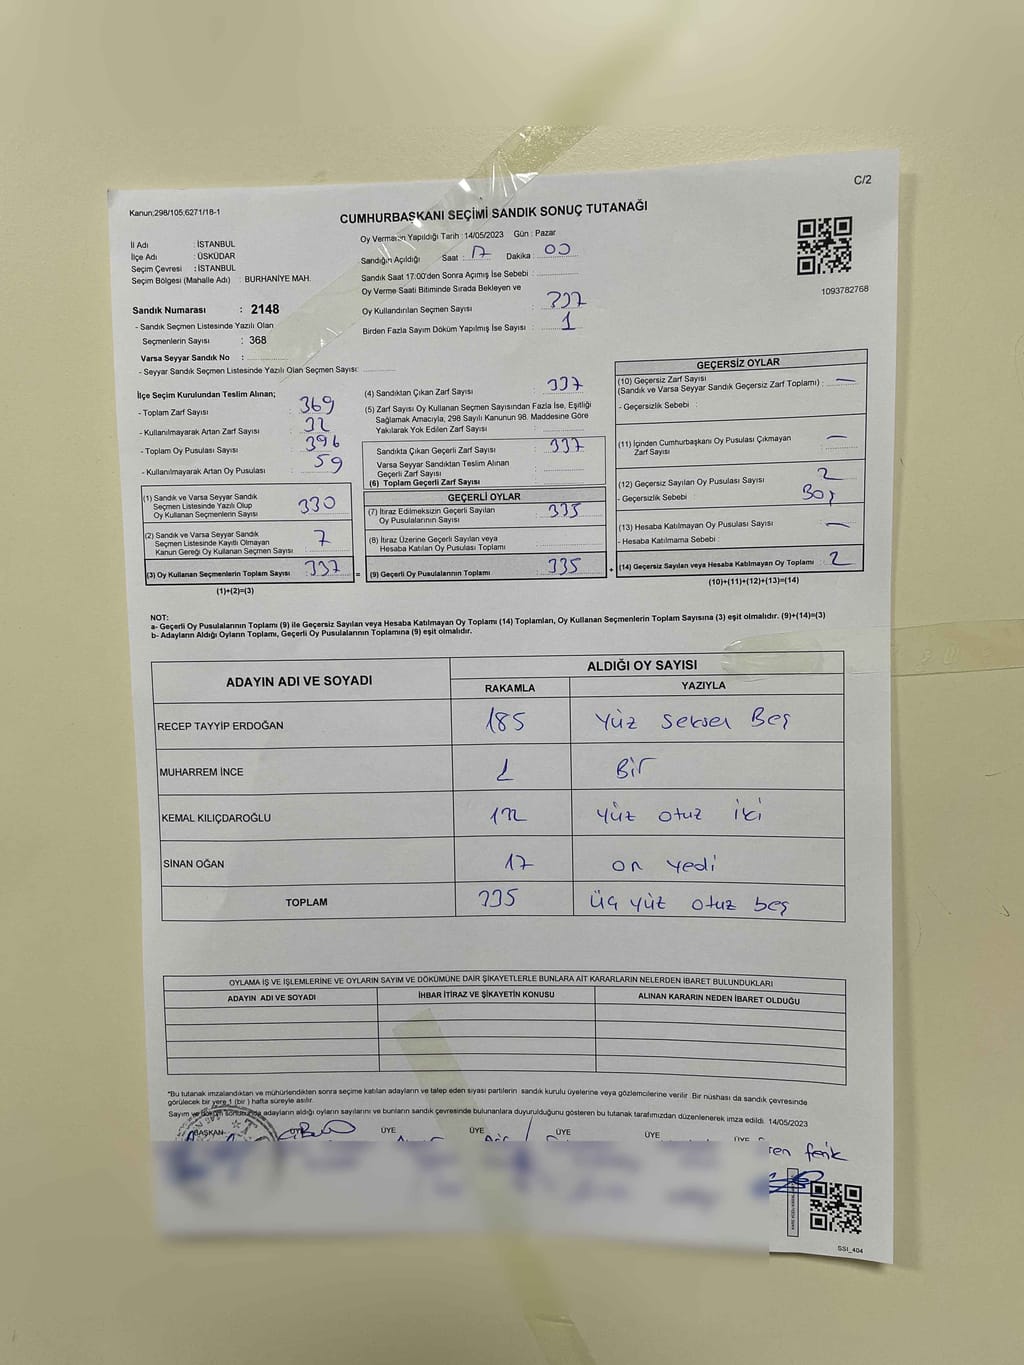 C/2
Kanun;298/105;6271/18-1
CUMHURBAŞKANI SEÇİMİ SANDIK SONUÇ TUTANAĞI
İl Adı : İSTANBUL
İlçe Adı : ÜSKÜDAR
Seçim Çevresi : İSTANBUL
Seçim Bölgesi (Mahalle Adı) : BURHANİYE MAH.
Oy Vermenin Yapıldığı Tarih : 14/05/2023 Gün : Pazar
Sandığın Açıldığı Saat : 17 Dakika : 00
Sandık Saat 17:00'den Sonra Açımış İse Sebebi :
Oy Verme Saati Bitiminde Sırada Bekleyen ve
Oy Kullandırılan Seçmen Sayısı : 337
Birden Fazla Sayım Döküm Yapılmış İse Sayısı : 1
1093782768
Sandık Numarası : 2148
- Sandık Seçmen Listesinde Yazılı Olan
Seçmenlerin Sayısı : 368
Varsa Seyyar Sandık No :
- Seyyar Sandık Seçmen Listesinde Yazılı Olan Seçmen Sayısı:
İlçe Seçim Kurulundan Teslim Alınan;
- Toplam Zarf Sayısı : 369
- Kullanılmayarak Artan Zarf Sayısı : 32
- Toplam Oy Pusulası Sayısı : 396
- Kullanılmayarak Artan Oy Pusulası : 59
(1) Sandık ve Varsa Seyyar Sandık
Seçmen Listesinde Yazılı Olup
Oy Kullanan Seçmenlerin Sayısı : 330
(2) Sandık ve Varsa Seyyar Sandık
Seçmen Listesinde Kayıtlı Olmayan
Kanun Gereği Oy Kullanan Seçmen Sayısı : 7
(3) Oy Kullanan Seçmenlerin Toplam Sayısı : 337 =
(1)+(2)=(3)
(4) Sandıktan Çıkan Zarf Sayısı : 337
(5) Zarf Sayısı Oy Kullanan Seçmen Sayısından Fazla İse, Eşitliği
Sağlamak Amacıyla, 298 Sayılı Kanunun 98. Maddesine Göre
Yakılarak Yok Edilen Zarf Sayısı :
Sandıkta Çıkan Geçerli Zarf Sayısı : 337
Varsa Seyyar Sandıktan Teslim Alınan
Geçerli Zarf Sayısı :
(6) Toplam Geçerli Zarf Sayısı :
GEÇERLİ OYLAR
(7) İtiraz Edilmeksizin Geçerli Sayılan
Oy Pusulalarının Sayısı : 335
(8) İtiraz Üzerine Geçerli Sayılan veya
Hesaba Katılan Oy Pusulası Toplamı :
(9) Geçerli Oy Pusulalarının Toplamı : 335 +
GEÇERSİZ OYLAR
(10) Geçersiz Zarf Sayısı
(Sandık ve Varsa Seyyar Sandık Geçersiz Zarf Toplamı) : —
- Geçersizlik Sebebi :
(11) İçinden Cumhurbaşkanı Oy Pusulası Çıkmayan
Zarf Sayısı : —
(12) Geçersiz Sayılan Oy Pusulası Sayısı : 2
- Geçersizlik Sebebi : Boş
(13) Hesaba Katılmayan Oy Pusulası Sayısı : —
- Hesaba Katılmama Sebebi :
(14) Geçersiz Sayılan veya Hesaba Katılmayan Oy Toplamı : 2
(10)+(11)+(12)+(13)=(14)
NOT:
a- Geçerli Oy Pusulalarının Toplamı (9) ile Geçersiz Sayılan veya Hesaba Katılmayan Oy Toplamı (14) Toplamları, Oy Kullanan Seçmenlerin Toplam Sayısına (3) eşit olmalıdır. (9)+(14)=(3)
b- Adayların Aldığı Oyların Toplamı, Geçerli Oy Pusulalarının Toplamına (9) eşit olmalıdır.
ADAYIN ADI VE SOYADI ALDIĞI OY SAYISI
RAKAMLA YAZIYLA
RECEP TAYYİP ERDOĞAN 185 Yüz seksen Beş
MUHARREM İNCE 1 Bir
KEMAL KILIÇDAROĞLU 132 Yüz otuz iki
SİNAN OĞAN 17 on yedi
TOPLAM 335 üç yüz otuz beş
OYLAMA İŞ VE İŞLEMLERİNE VE OYLARIN SAYIM VE DÖKÜMÜNE DAİR ŞİKAYETLERLE BUNLARA AİT KARARLARIN NELERDEN İBARET BULUNDUKLARI
ADAYIN ADI VE SOYADI İHBAR İTİRAZ VE ŞİKAYETİN KONUSU ALINAN KARARIN NEDEN İBARET OLDUĞU
*Bu tutanak imzalandıktan ve mühürlendikten sonra seçime katılan adayların ve talep eden siyasi partilerin sandık kurulu üyelerine veya gözlemcilerine verilir. Bir nüshası da sandık çevresinde
görülecek bir yere 1 (bir ) hafta süreyle asılır.
Sayım ve döküm sonucunda adayların aldığı oyların sayılarını ve bunların sandık çevresinde bulunanlara duyurulduğunu gösteren bu tutanak tarafımızdan düzenlenerek imza edildi. 14/05/2023
BAŞKAN ÜYE ÜYE ÜYE ÜYE ÜYE
SSİ_404